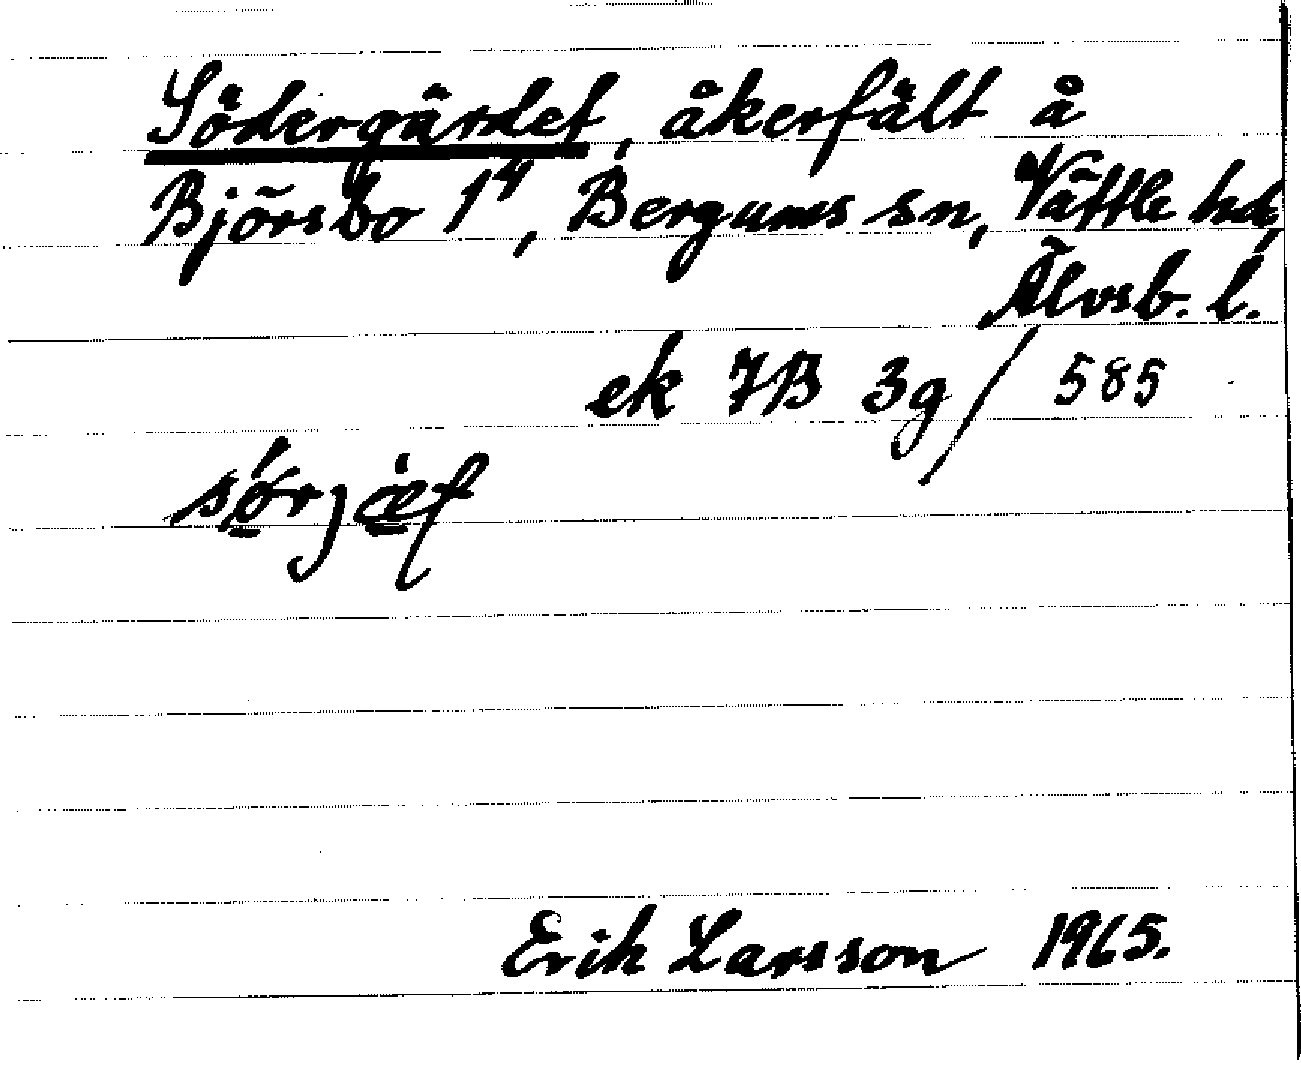 Södergärdet, åkerfält å
Björsbo 1⁴, Bergums sn, Vättle hd,
Älvsb. l.
ek 7B 3g/585
Erik Larsson 1965.